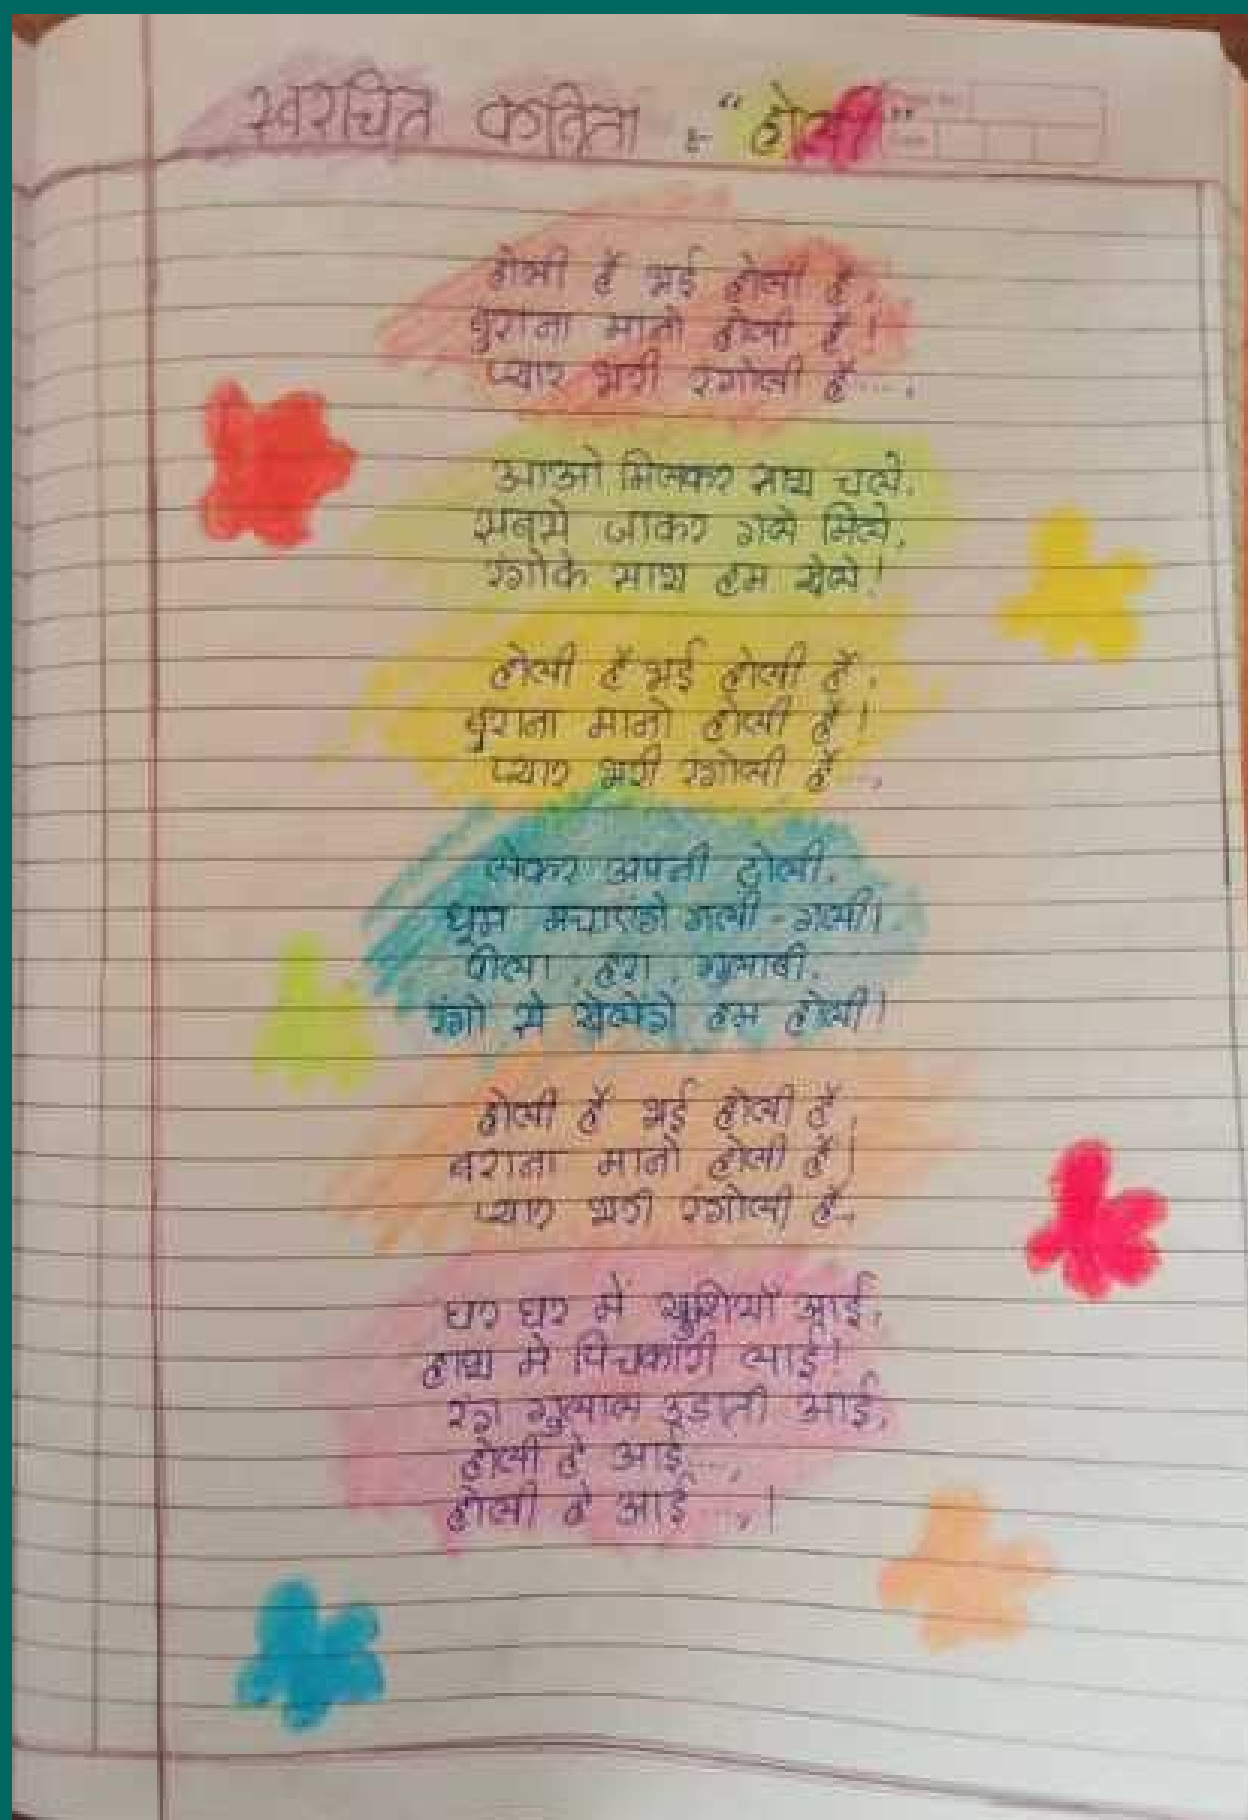 स्वरचित कविता :- "होली"
होली हैं भई होली हैं,
बुराना मानो होली हैं!
प्यार भरी रंगोली हैं....,
आओ मिलकर साथ चले,
सबसे जाकर गले मिले,
रंगोके साथ हम खेले!
होली हैं भई होली हैं,
बुराना मानो होली हैं!
प्यार भरी रंगोली हैं...,
लेकर अपनी टोली,
धूम मचाएंगे गली - गली!
पीला, हरा, गुलाबी,
रंगो से खेलेंगे हम होली!
होली हैं भई होली हैं,
बुराना मानो होली हैं!
प्यार भरी रंगोली हैं...
घर घर में खुशियाँ आई,
हाथ में पिचकारी लाई!
रंग गुलाल उडाती आई,
होली है आई....,
होली है आई....,!